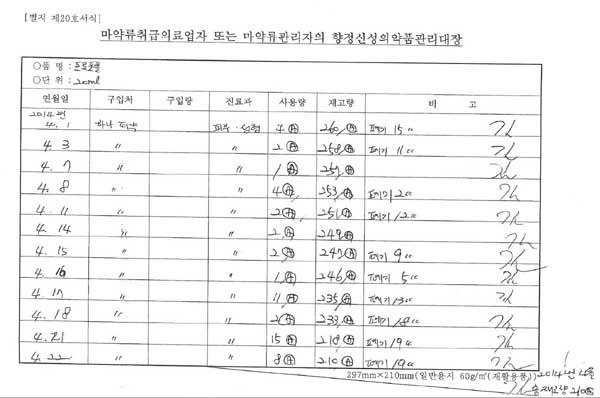 [별지 제20호서식]
마약류취급의료업자 또는 마약류관리자의 향정신성의약품관리대장
○품 명 : 프로포폴
○단 위 : 20ml
연월일 구입처 구입량 진료과 사용량 재고량 비 고
2014년
4. 1 하나 피부·성형 4 Ⓐ 260 Ⓐ 폐기 15 cc
4. 3 〃 〃 2 Ⓐ 258 Ⓐ 폐기 11 cc
4. 7 〃 〃 1 Ⓐ 257 Ⓐ
4. 8 〃 〃 4 Ⓐ 253 Ⓐ 폐기 2 cc
4. 11 〃 〃 2 Ⓐ 251 Ⓐ 폐기 12 cc
4. 14 〃 〃 2 Ⓐ 249 Ⓐ
4. 15 〃 〃 2 Ⓐ 247 Ⓐ 폐기 9 cc
4. 16 〃 〃 1 Ⓐ 246 Ⓐ 폐기 5 cc
4. 17 〃 〃 11 Ⓐ 235 Ⓐ 폐기 13 cc
4. 18 〃 〃 2 Ⓐ 233 Ⓐ 폐기 18 cc
4. 21 〃 〃 15 Ⓐ 218 Ⓐ 폐기 19 cc
4. 22 〃 〃 8 Ⓐ 210 Ⓐ 폐기 19 cc
297mm×210mm(일반용지 60g/㎡(재활용품))
2014년 4월
총재고량 210